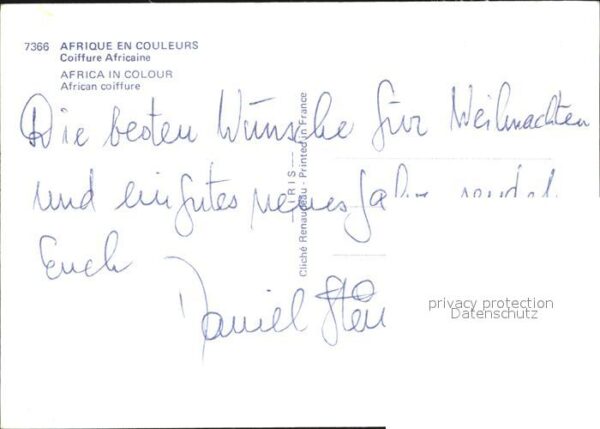 7366 AFRIQUE EN COULEURS
Coiffure Africaine
AFRICA IN COLOUR
African coiffure
Die besten Wünsche für Weihnachten
und ein gutes neues Jahr sendet
Euch
Daniel
IRIS
Cliché Renaudeau - Printed in France
privacy protection
Datenschutz